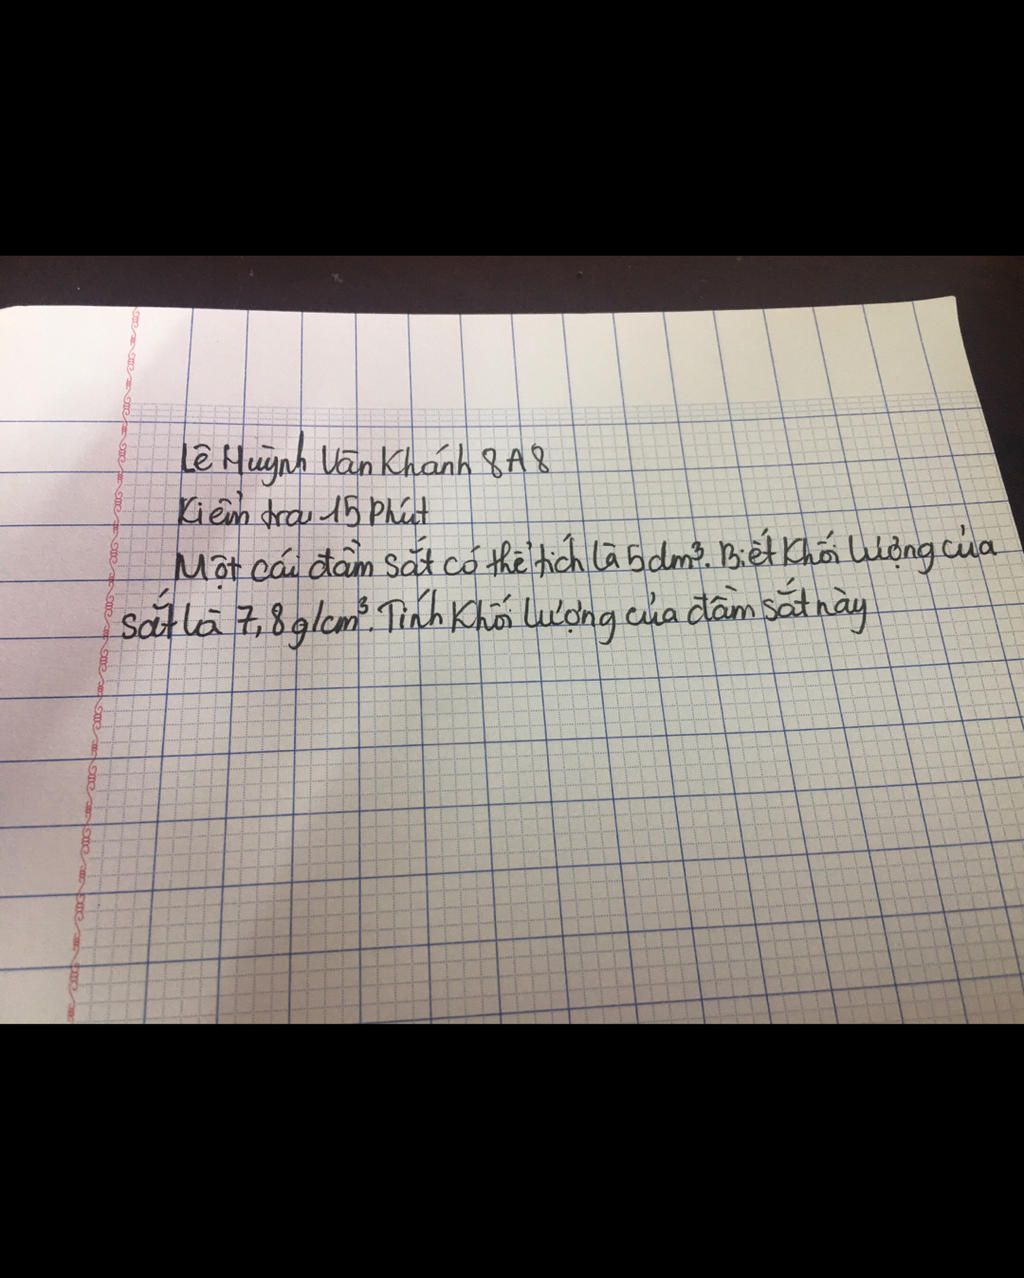 Lê Huỳnh Vân Khánh 8A8
Kiểm tra 15 phút
Một cái đầm sắt có thể tích là 5dm³. Biết khối lượng của
sắt là 7,8g/cm³. Tính khối lượng của đầm sắt này